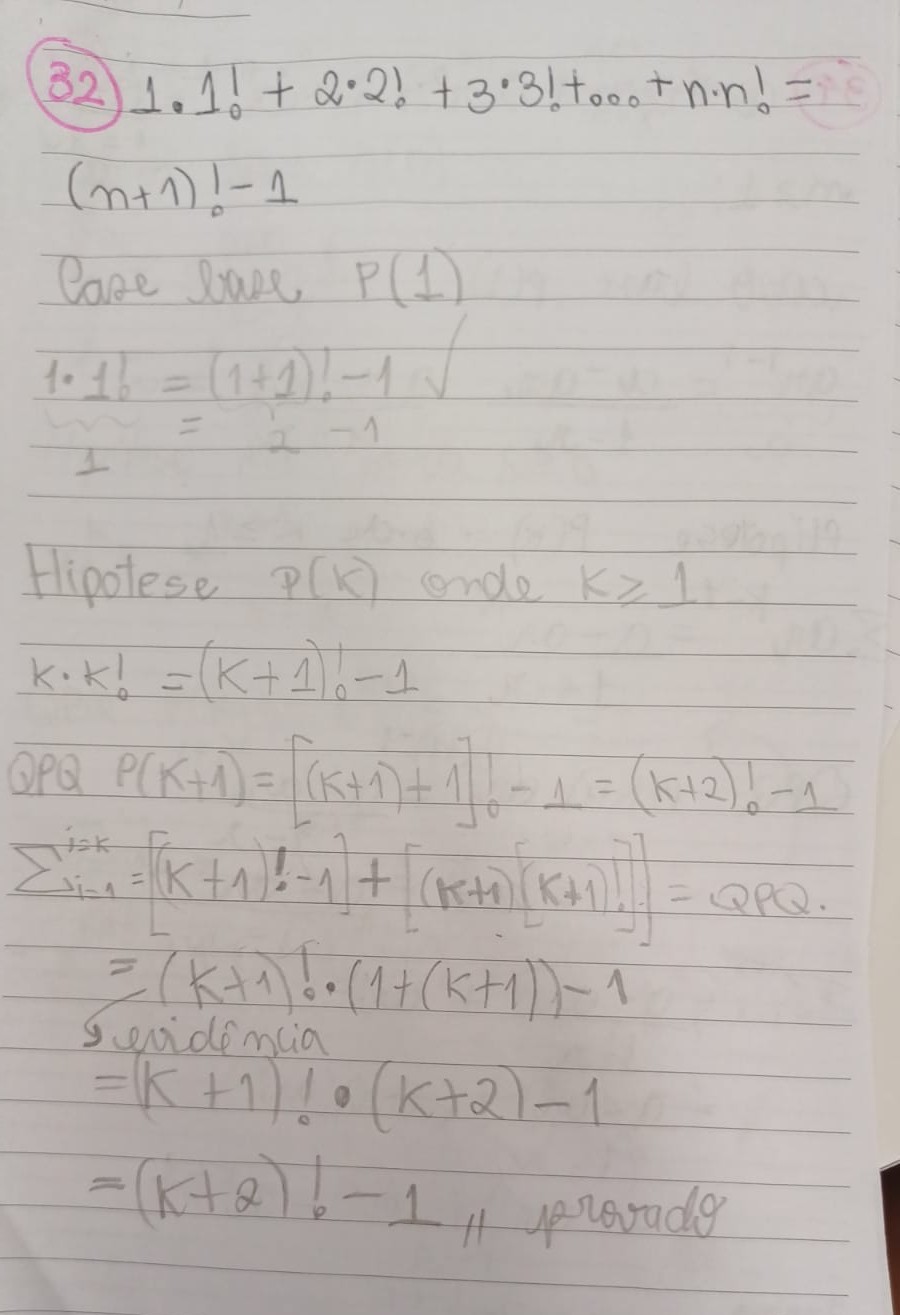 32 1.1! + 2·2! + 3·3!+...+n·n! =
(n+1)!-1
Case base P(1)
1·1! = (1+1)!-1 √
= 2 -1
1
Hipotese P(K) onde K≥1
K·K! =(K+1)!-1
QPQ P(K+1)=[(K+1)+1]!-1=(K+2)!-1
∑ i=K i=1 =[(K+1)!-1]+[(K+1)[K+1)!]]=QPQ.
=(K+1)!·(1+(K+1))-1
↳ evidência
=(K+1)!·(K+2)-1
=(K+2)!-1 ,, provado